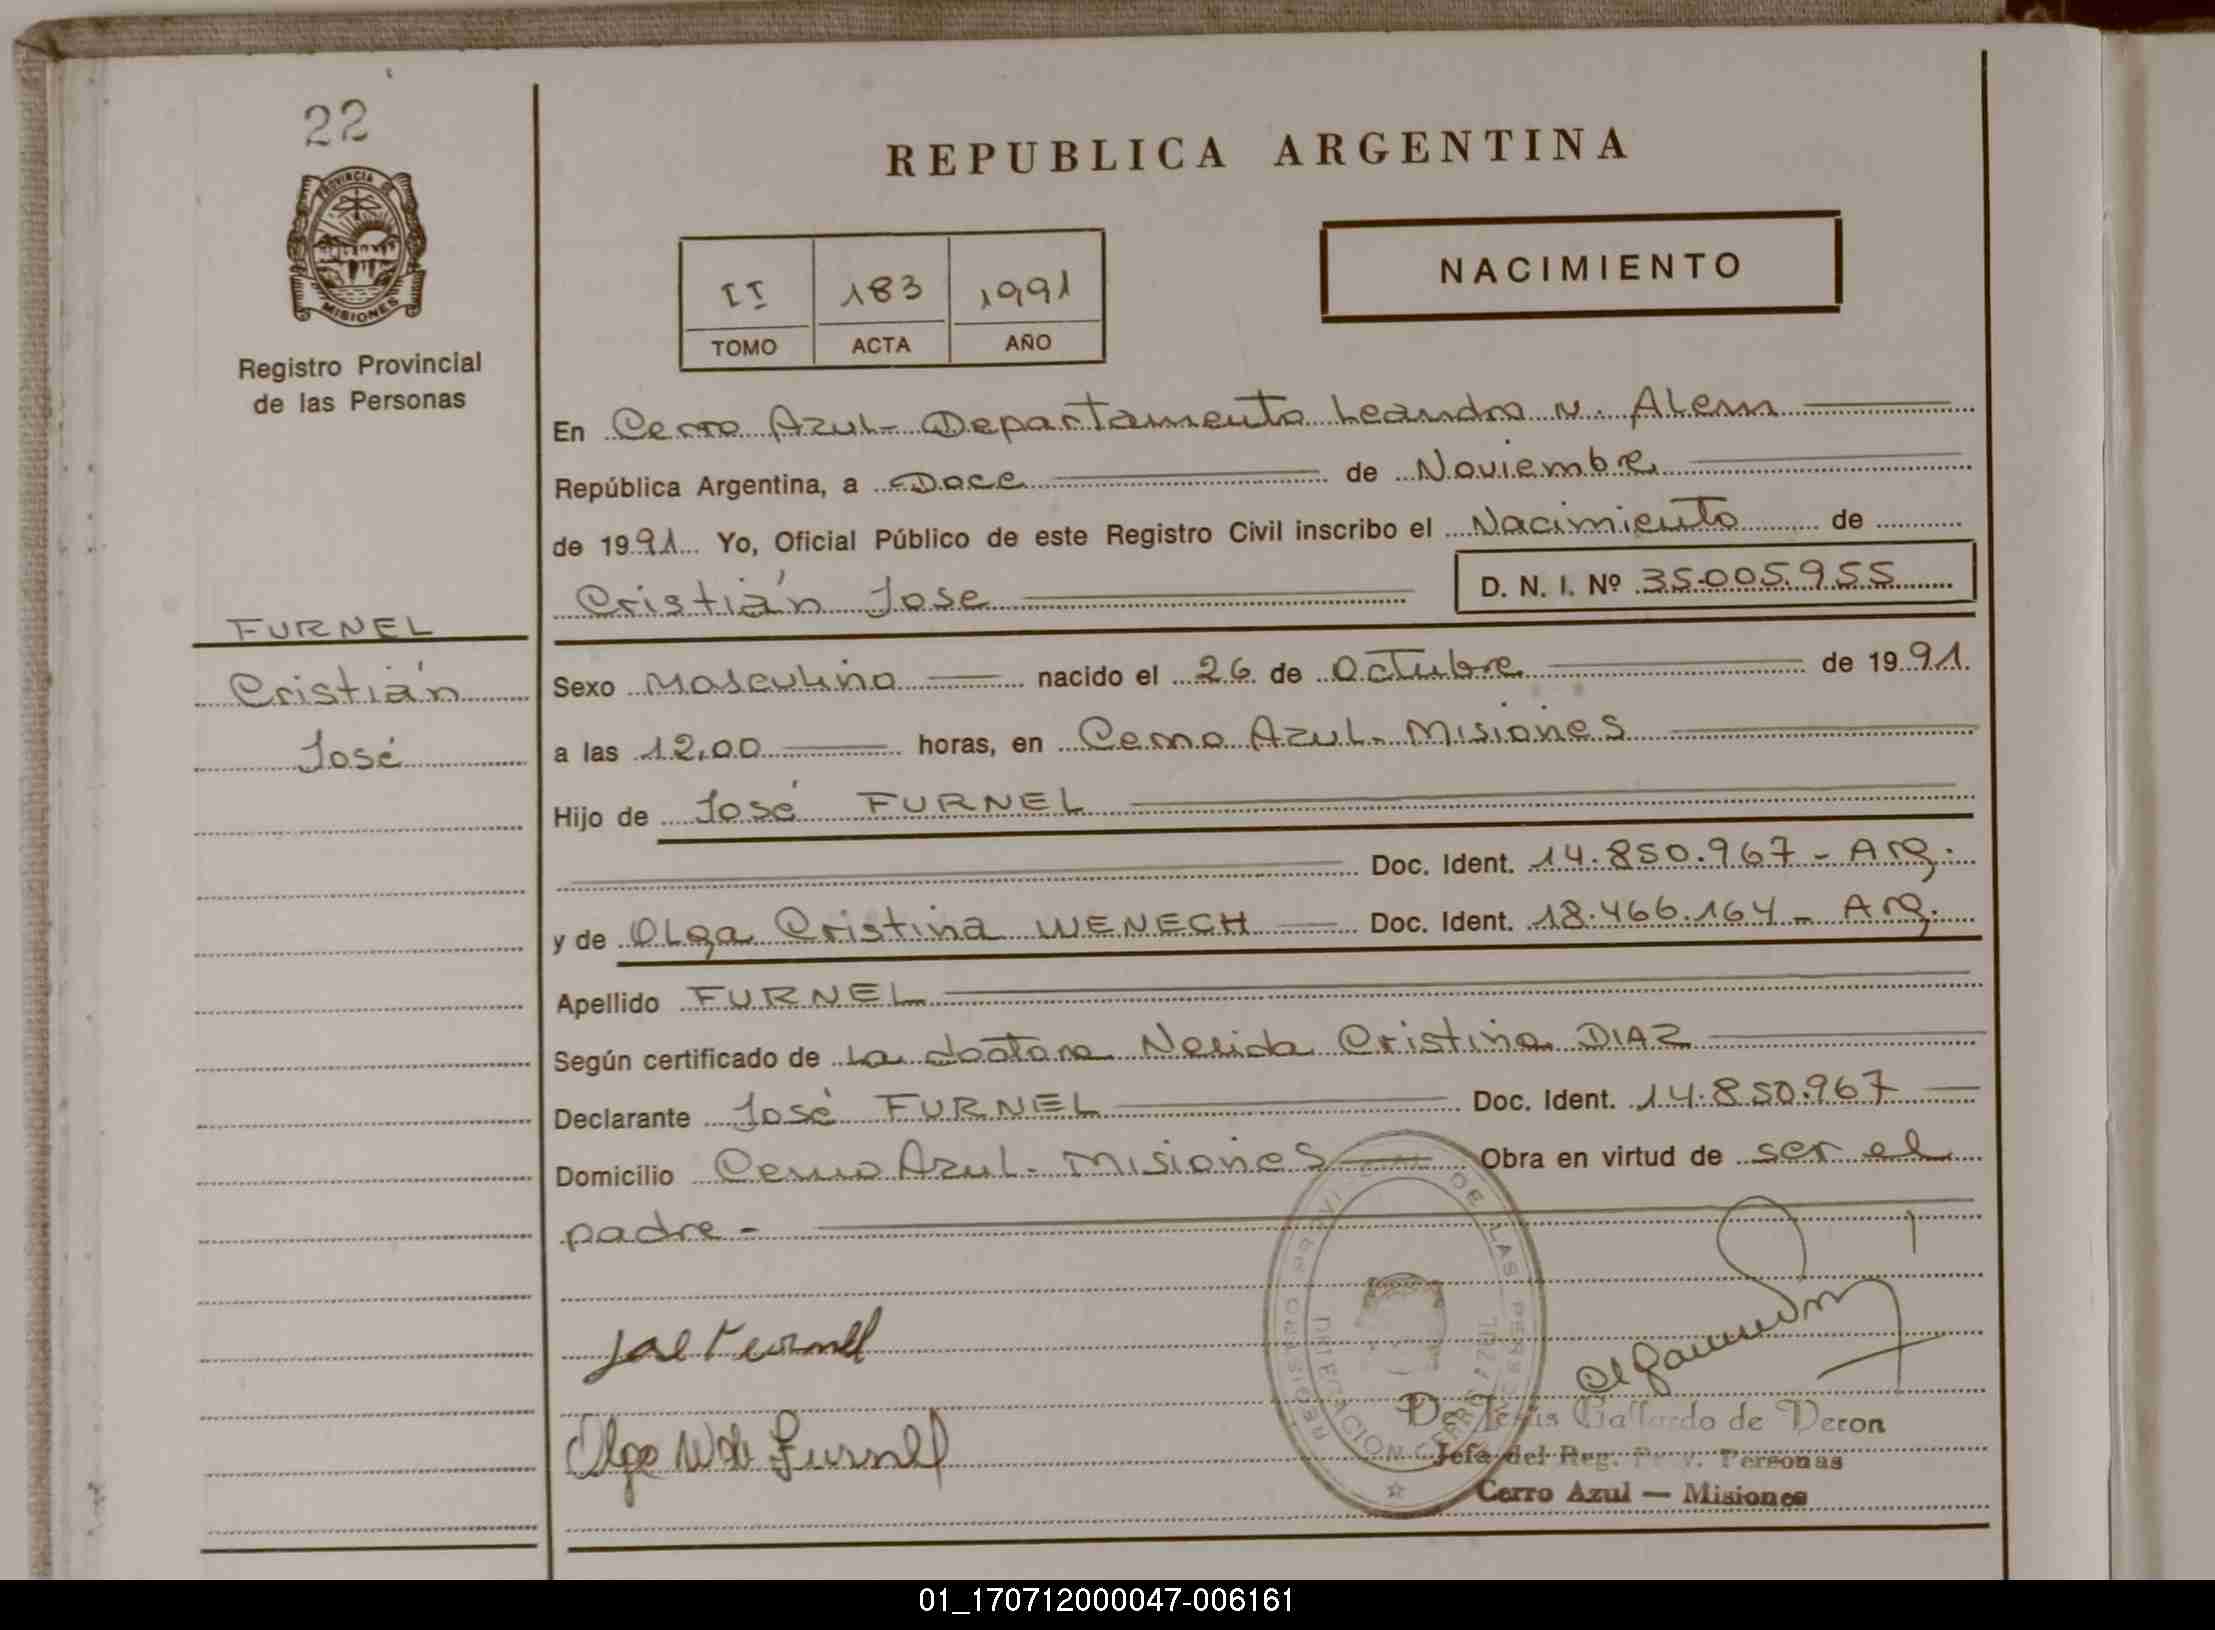 22
PROVINCIA DE
MISIONES
Registro Provincial
de las Personas
FURNEL
Cristián
José
REPUBLICA ARGENTINA
II 183 1991
TOMO ACTA AÑO
NACIMIENTO
En Cerro Azul - Departamento Leandro N. Alem
República Argentina, a Doce de Noviembre
de 1991 Yo, Oficial Público de este Registro Civil inscribo el Nacimiento de
Cristián Jose D. N. I. Nº 35.005.955
Sexo Masculino nacido el 26 de Octubre de 1991.
a las 12,00 horas, en Cerro Azul - Misiones
Hijo de José FURNEL
Doc. Ident. 14.850.967 - Arg.
y de Olga Cristina WENECH Doc. Ident. 18.466.164 - Arg.
Apellido FURNEL
Según certificado de La doctora Nerida Cristina DIAZ
Declarante José FURNEL Doc. Ident. 14.850.967
Domicilio Cerro Azul - Misiones Obra en virtud de ser el
padre -
DE LAS
José Furnel
Olga W de Furnel
De Jesús Gallardo de Veron
Jefe del Reg. Prov. Personas
Cerro Azul — Misiones
01_170712000047-006161